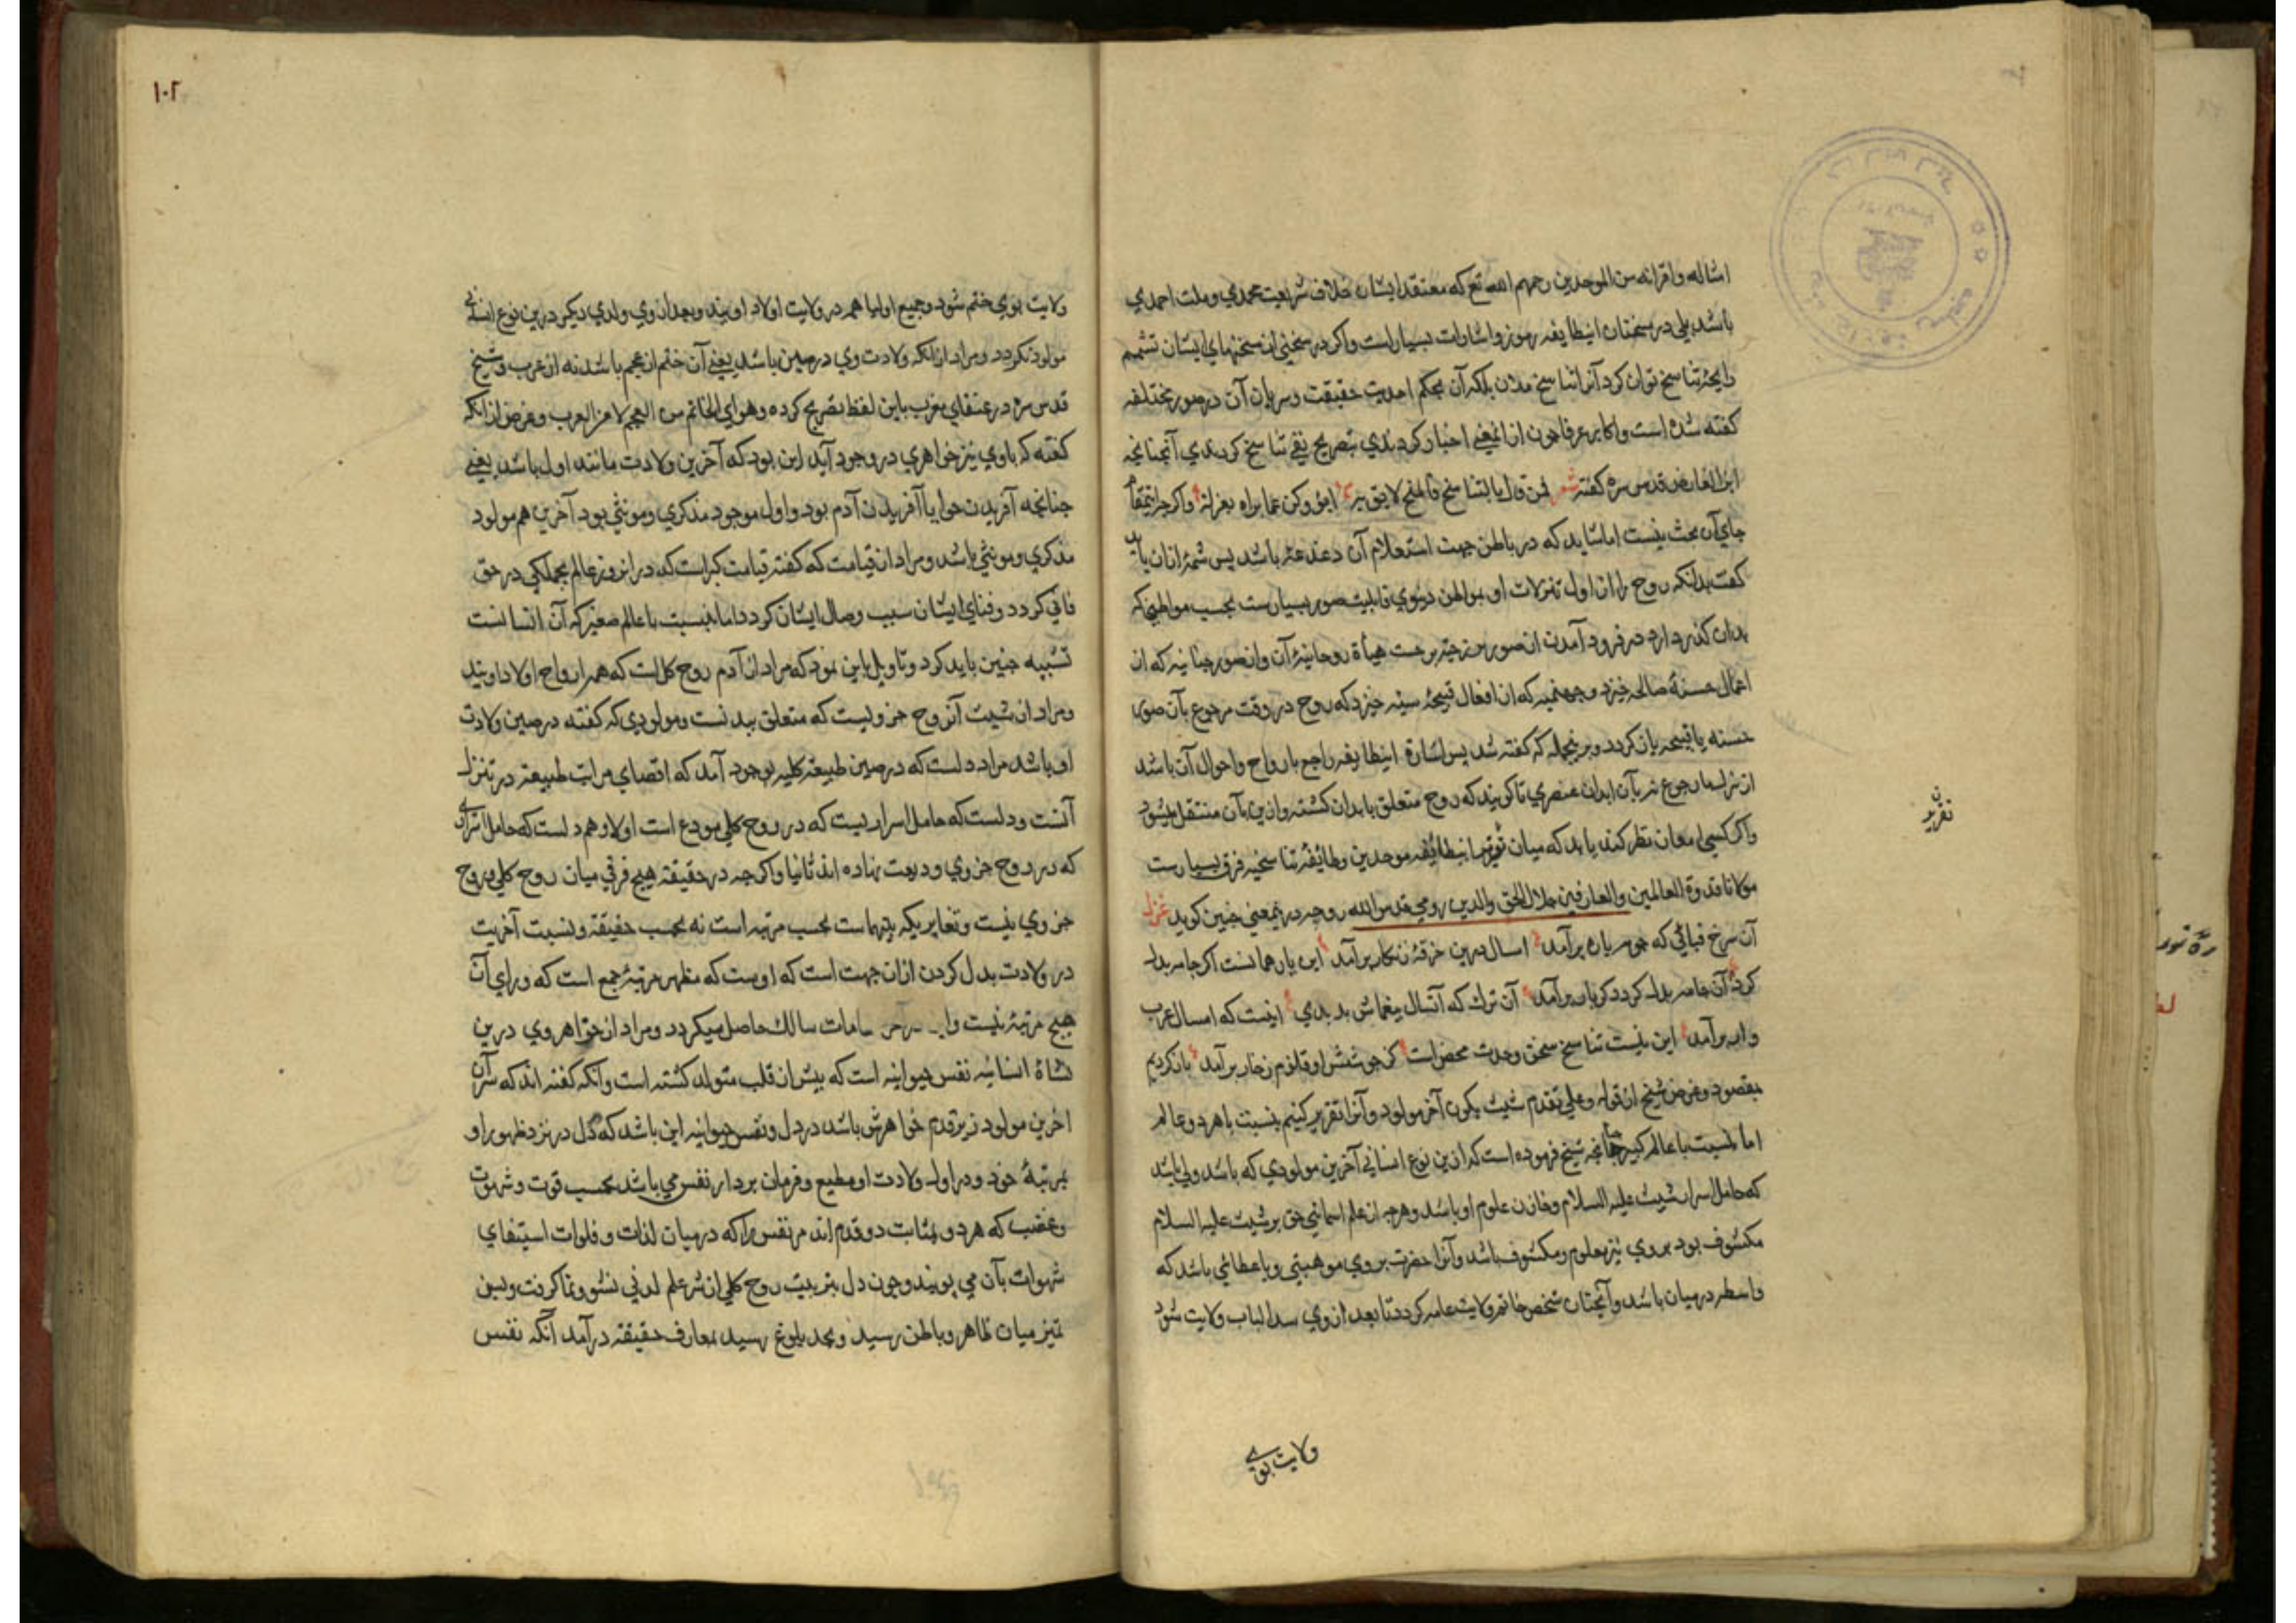 امثاله واقرانه من الموحدین رحمهم الله تع که معتقد ایشان خلاف شریعت محمدي وملت احمدي
باشد بلي در سخنان اینطایفه رموز واشارات بسیار است واکر در سخني از سخنهاي ایشان تشمم
رایحۀ تناسخ توان کرد آنرا تناسخ مدان بلکه آن بحکم احدیت حقیقت وسریان آن در صور مختلفه
کفته شده است واکابر عرفا چون از اینمعنی اخبار کردندي بتصریح نفی تناسخ کردندي آنچنانچه
ابن الفارض قدس سره کفته شعر فمن قال بالتناسخ فالمسخ لایق به ابرؤ وکن عما یراه بعزلة واکرچه اینمقام
جاي آن بحث نیست اما شاید که در باطن جهت استعلام آن دغدغه باشد پس شمۀ ازان باید
کفت بدانکه روح را از اول تنزلات او بمواطن دنیوي قابلیت صور بسیارست بحسب مواطنی که
بدان کذر دارد در فرود آمدن از صور برزخیه برحسب هیأة روحانیۀ آن واز صور جنانیه که از
اعمال حسنۀ صالحه خیزد وجهنمیه که از افعال قبیحۀ سیئه خیزد که روح در وقت رجوع بآن صور
حسنه یا قبیحه باز کردد وبرینجمله که کفته شد پس اشارة اینطایفه راجع بارواح واحوال آن باشد
از تنزلها ورجوع نه بآن ابدان عنصري تا کویند که روح متعلق بابدان کشته وازین بآن منتقل میشود
واکر کسی امعان نظر کند یابد که میان اینطایفه موحدین وطایفۀ تناسخیه فرق بسیارست
مولانا قدوة العالمین والعارفین جلال الحق والدین رومي قدس الله روحه درینمعنی چنین کوید غزل
آن سرخ قبائي که چو مه پار برآمد امسال درین خرقۀ زنکار برآمد این یار همانست اکر جامه بدل
کرد آن جامه بدل کرد دکر بار برآمد آن ترك که آنسال بیغماش بدیدي اینست که امسال عرب
وار برآمد این نیست تناسخ سخن وحدت محض است کز جوشش او قلزم زخار برآمد باز کردیم
بمقصود وغرض شیخ از قوله وعلي تقدم شیث یکون آخر مولود وآنرا تقریر کنیم بنسبت باهر دو عالم
اما بنسبت با عالم کبیر چنانچه شیخ فرموده است که ازین نوع انساني آخرین مولودي که باشد ولي باشد
که حامل اسرار شیث علیه السلام وخازن علوم او باشد وهرچه از علم اسمائي حق بر شیث علیه السلام
مکشوف بود بروي نیز معلوم ومکشوف باشد وآنرا حضرت بروي موهبتي ویا عطائي باشد که
واسطه درمیان باشد وآنچنان شخص خاتم ولایت عامه کردد تا بعد از وي سد الباب ولایت شود
ن
تقریر
ولایت بوي
۱۰۲
ولایت بوي ختم شود وجمیع اولیا همه در ولایت اولاد اویند وبعد از وي ولدي دیکر درین نوع انساني
مولود نکردد ومراد از انکه ولادت وي در صین باشد یعني آن ختم از عجم باشد نه از عرب وشیخ
قدس سره در عنقاي مغرب باین لفظ تصریح کرده وهو اي الخاتم من العجم لا من العرب وغرض از انکه
کفته که باوي نیز خواهري در وجود آید این بود که آخرین ولادت مانند اول باشد یعني
چنانچه آفریدن حوا با آفریدن آدم بود واول موجود مذکري ومونثي بود آخرین هم مولود
مذکري ومونثي باشد ومراد از قیامت که کفته قیامت کبراست که در آنروز عالم بجملکي در حق
فاني کردد وفناي ایشان سبب وصال ایشان کردد اما بنسبت با عالم صغیر که آن انسانست
تشبیه چنین باید کرد وتاویل باین نمود که مراد از آدم روح کل است که همه ارواح اولاد اویند
ومراد از شیث آن روح جزویست که متعلق ببدنست ومولودي که کفته در صین ولادت
او باشد مراد دلست که در صین طبیعة کلیه بوجود آمد که اقصاي مراتب طبیعة در تنزل
آنست ودلست که حامل اسراریست که در روح کلي مودع است اولا وهم دلست که حامل اسراري
که در روح جزوي ودیعت نهاده اند ثانیا واکرچه در حقیقة هیچ فرقي میان روح کلي وروح
جزوي نیست وتغایریکه بینهماست بحسب مرتبه است نه بحسب حقیقة ونسبت آخریت
در ولادت بدل کردن ازان جهت است که اوست که مظهر مرتبۀ جمع است که وراي آن
هیچ مرتبۀ نیست سالك حاصل میکردد ومراد از خواهر وي درین
نشاة انسانیه نفس حیوانیه است که پیش از قلب متولد کشته است وآنکه کفته اند که سر آن
اخرین مولود زیر قدم خواهرش باشد در دل ونفس حیوانیه این باشد که دل در نزد ظهور او
بمرتبۀ خود ودر اول ولادت او مطیع وفرمان بردار نفس مي باشد بحسب قوت وشهوت
وغضب که هر دو بمثابت دو قدم اند مر نفس را که درمیان لذات وفلوات استیفاي
شهوات بآن مي پویند وچون دل بتربیت روح کلي از شر علم لدني نشو ونما کرفت وبسن
تمیز میان ظاهر وباطن رسید وبحد بلوغ رسید بمعارف حقیقة درآمد آنکه نفس